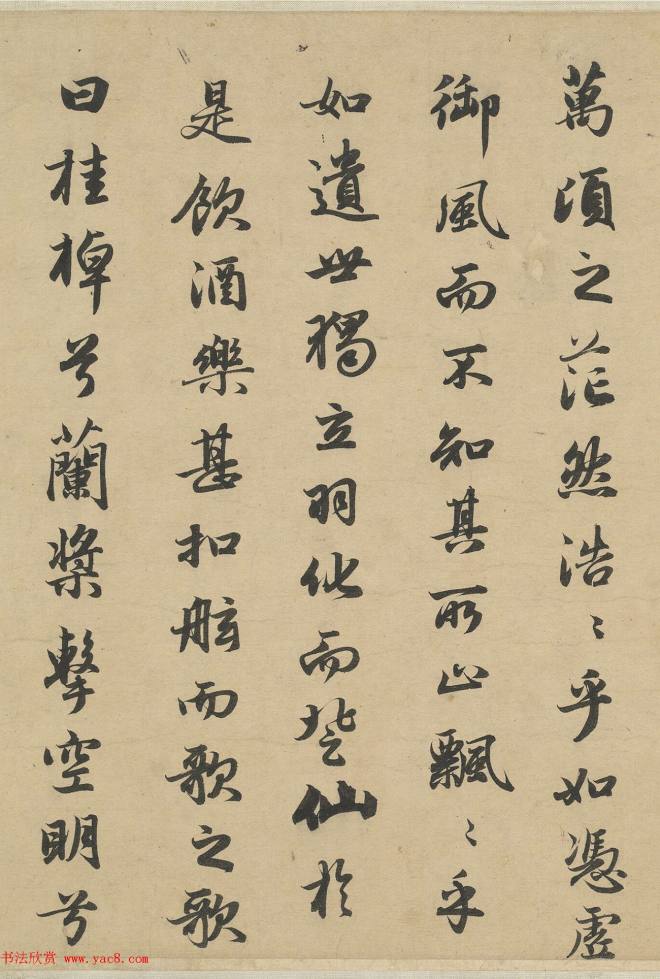 萬頃之茫然浩〻乎如憑虛
御風而不知其所止飄〻乎
如遺世獨立羽化而登仙於
是飲酒樂甚扣舷而歌之歌
曰桂棹兮蘭槳擊空明兮
书法欣赏 www.yac8.com